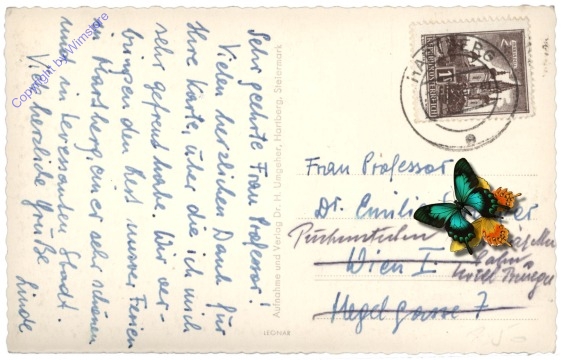 Sehr geehrte Frau Professor!
Vielen herzlichen Dank für
Ihre Karte, über die ich mich
sehr gefreut habe. Wir ver-
bringen den Rest unserer Ferien
in Hartberg, einer sehr schönen
und interessanten Stadt.
Viele herzliche Grüße
Linde
Aufnahme und Verlag Dr. H. Umgeher, Hartberg, Steiermark
LEGNAR
HARTBERG
REPUBLIK
ÖSTERREICH
Frau Professor
Dr. Emilie
Puchenstuben
Wien I.
Hotel Burger
Hegelgasse 7
Copyright by Wimstore